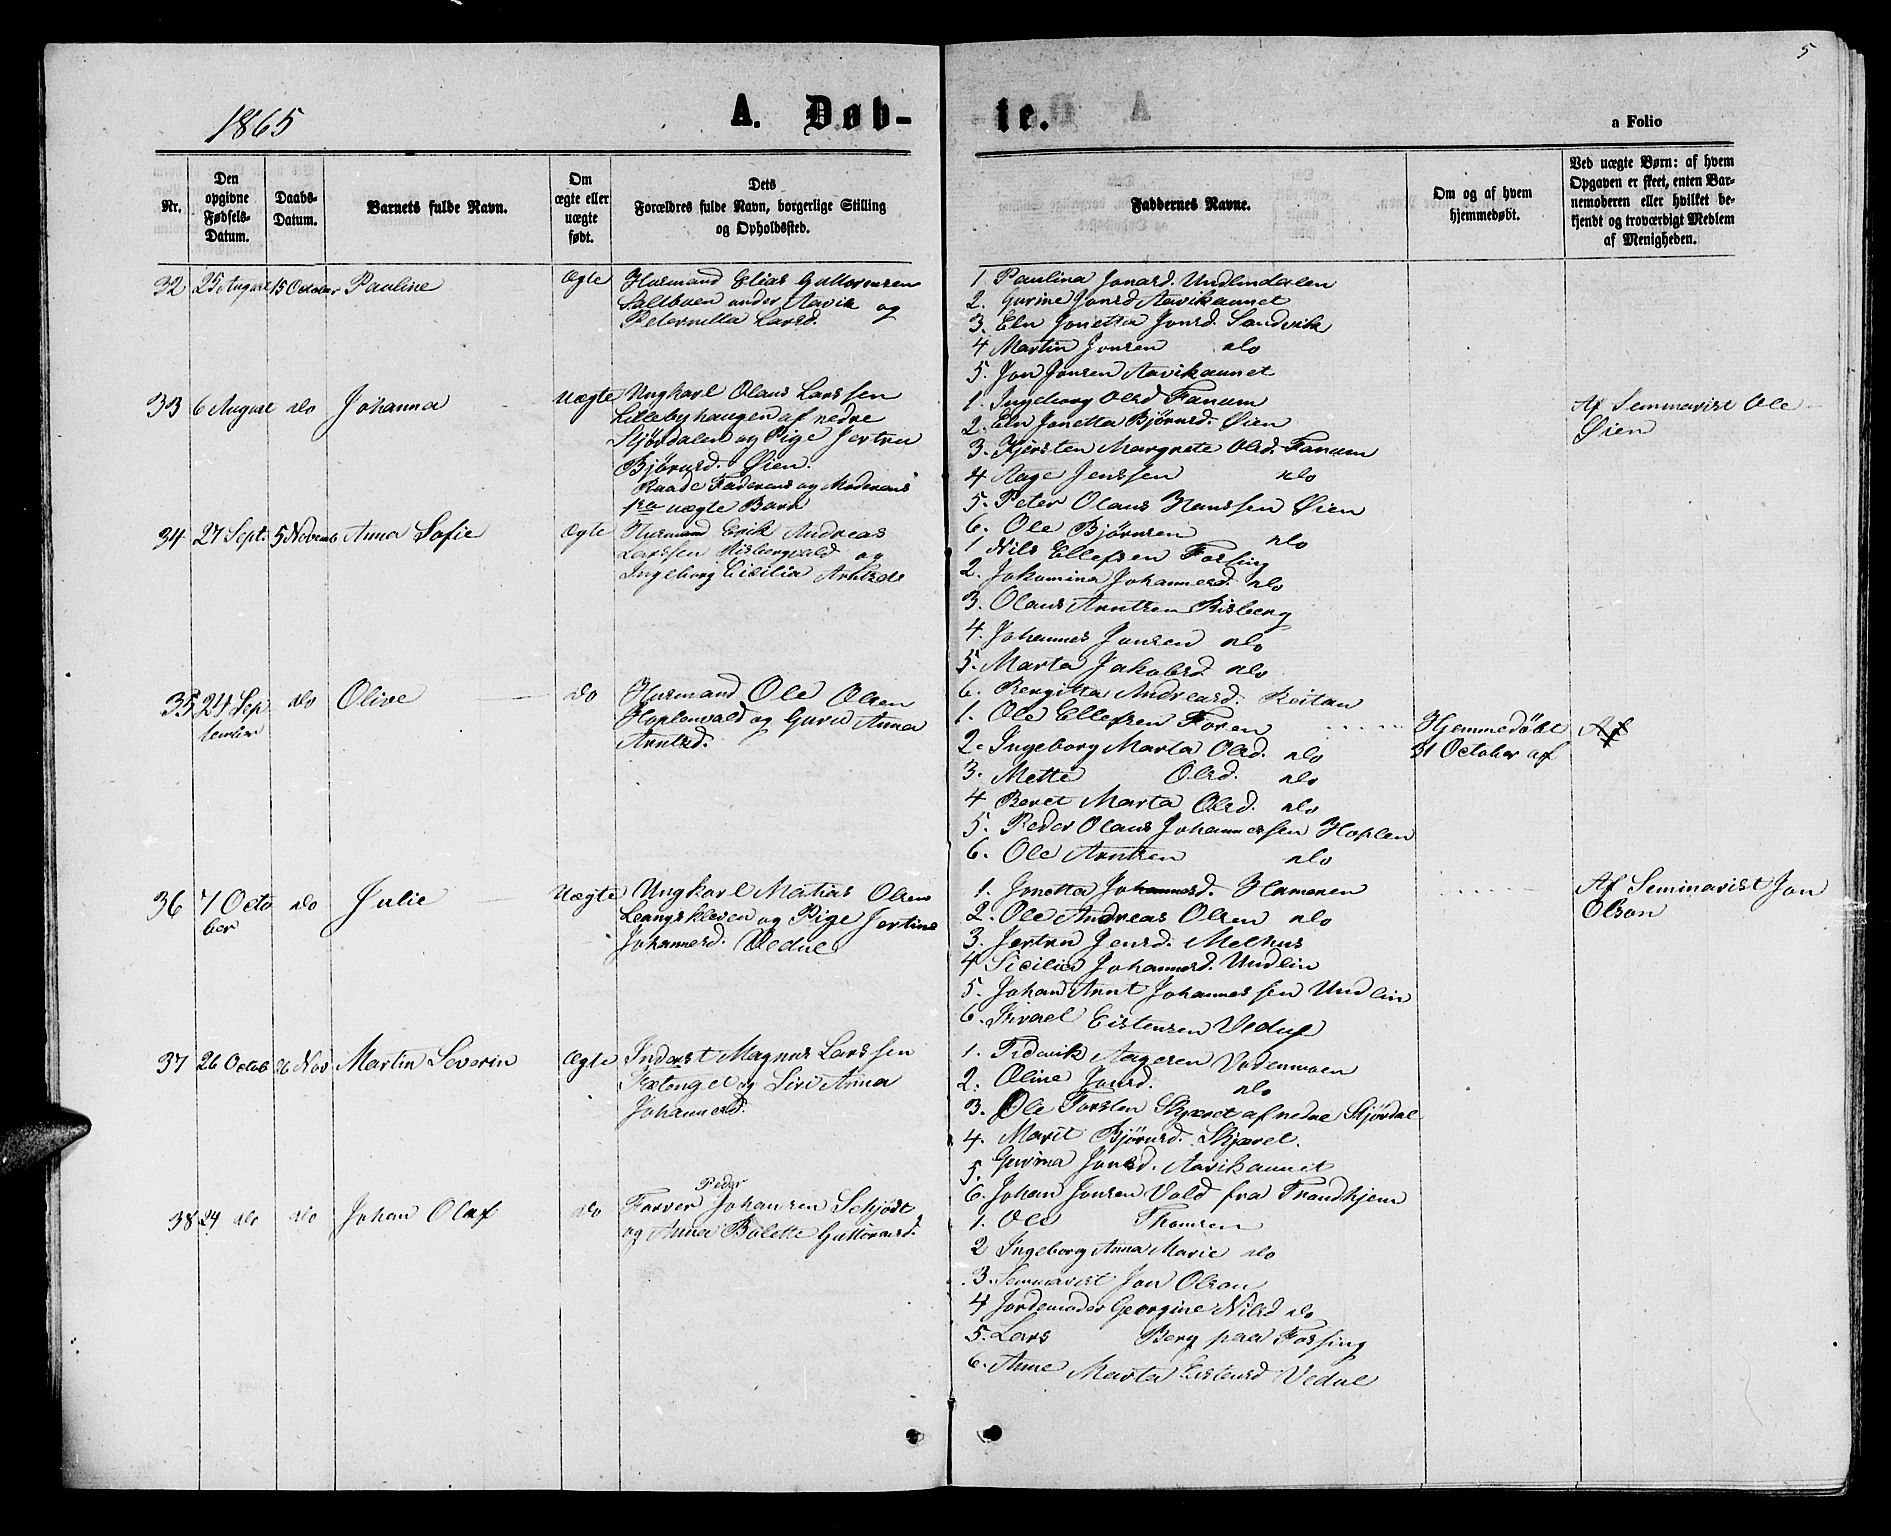 5
1865
A. Døb-
te.
a Folio
Nr.
Den opgivne Fødsels-Datum.
Daabs-Datum.
Barnets fulde Navn.
Om ægte eller uægte født.
Dets Forældres fulde Navn, borgerlige Stilling og Opholdssted.
Faddernes Navne.
Om og af hvem hjemmedøbt.
Ved uægte Børn: af hvem Opgaven er skeet, enten Barnemoderen eller hvilket bekjendt og troværdigt Medlem af Menigheden.
32 25 August 15 October Pauline Ægte Husmand Elias Guttormsen
Saltbuen under Aavik og
Peternella Larsd.
1 Paulina Jonasd. Undlindalen
2. Gurine Jonsd Aavikaunet
3. Eln Jonetta Jonsd. Sandvik
4 Martin Jonsen do
5. Jon Jonsen Aavikaunet
33 6 August do Johanna Uægte Ungkarl Olaus Larssen
Lillebyhaugen af nedre
Stjørdalen og Pige Jertru
Bjørnsd. Øien.
Baade Faderens og Moderens
1ste uægte Barn
1. Ingeborg Olsd Fanum
2. Eln Jonetta Bjørnsd. Øien
3. Kjersten Margrete Olsd. Fanum
4 Aage Jenssen do
5. Peter Olaus Hanssen Øien
6. Ole Bjørnsen do
Af Seminarist Ole
Øien
34 27 Sept. 5 Novemb Anna Sofie Ægte Husmand Erik Andreas
Larssen Risbergvald og
Ingeborg Cicilia Arntsd
1 Nils Ellefsen Forsing
2. Jakomina Johannesd. do
3. Olaus Arntsen Risberg
4. Johannes Jonsen do
5. Marta Jakobsd do
6. Bergitta Andreasd. Reitan
35 24 Sep
tember do Olive do Husmand Ole Olsen
Hoplenvald og Guru Anna
Arntsd.
1. Ole Ellefsen Foren
2. Ingeborg Marta Olsd. do
3. Mette Olsd. do
4 Beret Marta Olsd. do
5. Peder Olaus Johannessen Hoplen
6. Ole Arntsen do
Hjemmedöbt
31 October af
Af
36 7 Octo
ber do Julie Uægte Ungkarl Matias Olsen
Leangskleven og Pige Jertine
Johannesd. Vedul
1. Jonetta Johannesd. Hameren
2. Ole Andreas Olsen do
3. Jertru Jensd. Melhus
4 Sicilia Johannesd. Undlin
5. Johan Arnt Johannessen Undlin
6. Israel Eistensen Vedul
Af Seminarist Jon
Olson
37 26 Octob 26 Nov Martin Severin Ægte Inderst Magnus Larssen
Fætenget og Siri Anna
Johannesd.
1. Frederik Aagesen Vodenmoen
2. Oline Jonsd. do
3. Ole Forsten Skjæret af nedre Stjørdal
4. Marit Bjørnsd. Skjæret.
5. Gurina Jonsd. Aavikaunet
6. Johan Jonsen Vold fra Trondhjem
38 24 do do Johan Olaf do Farver Peder Johansen Schjødt
og Anna Bolette Guttormsd.
1. Ole Thomsen
2 Ingeborg Anna Marie do
3. Seminarist Jon Olson
4 Jordemoder Georgine Nilsd do
5. Lars Berg paa Forsing
6. Anne Marta Eistensd Vedul